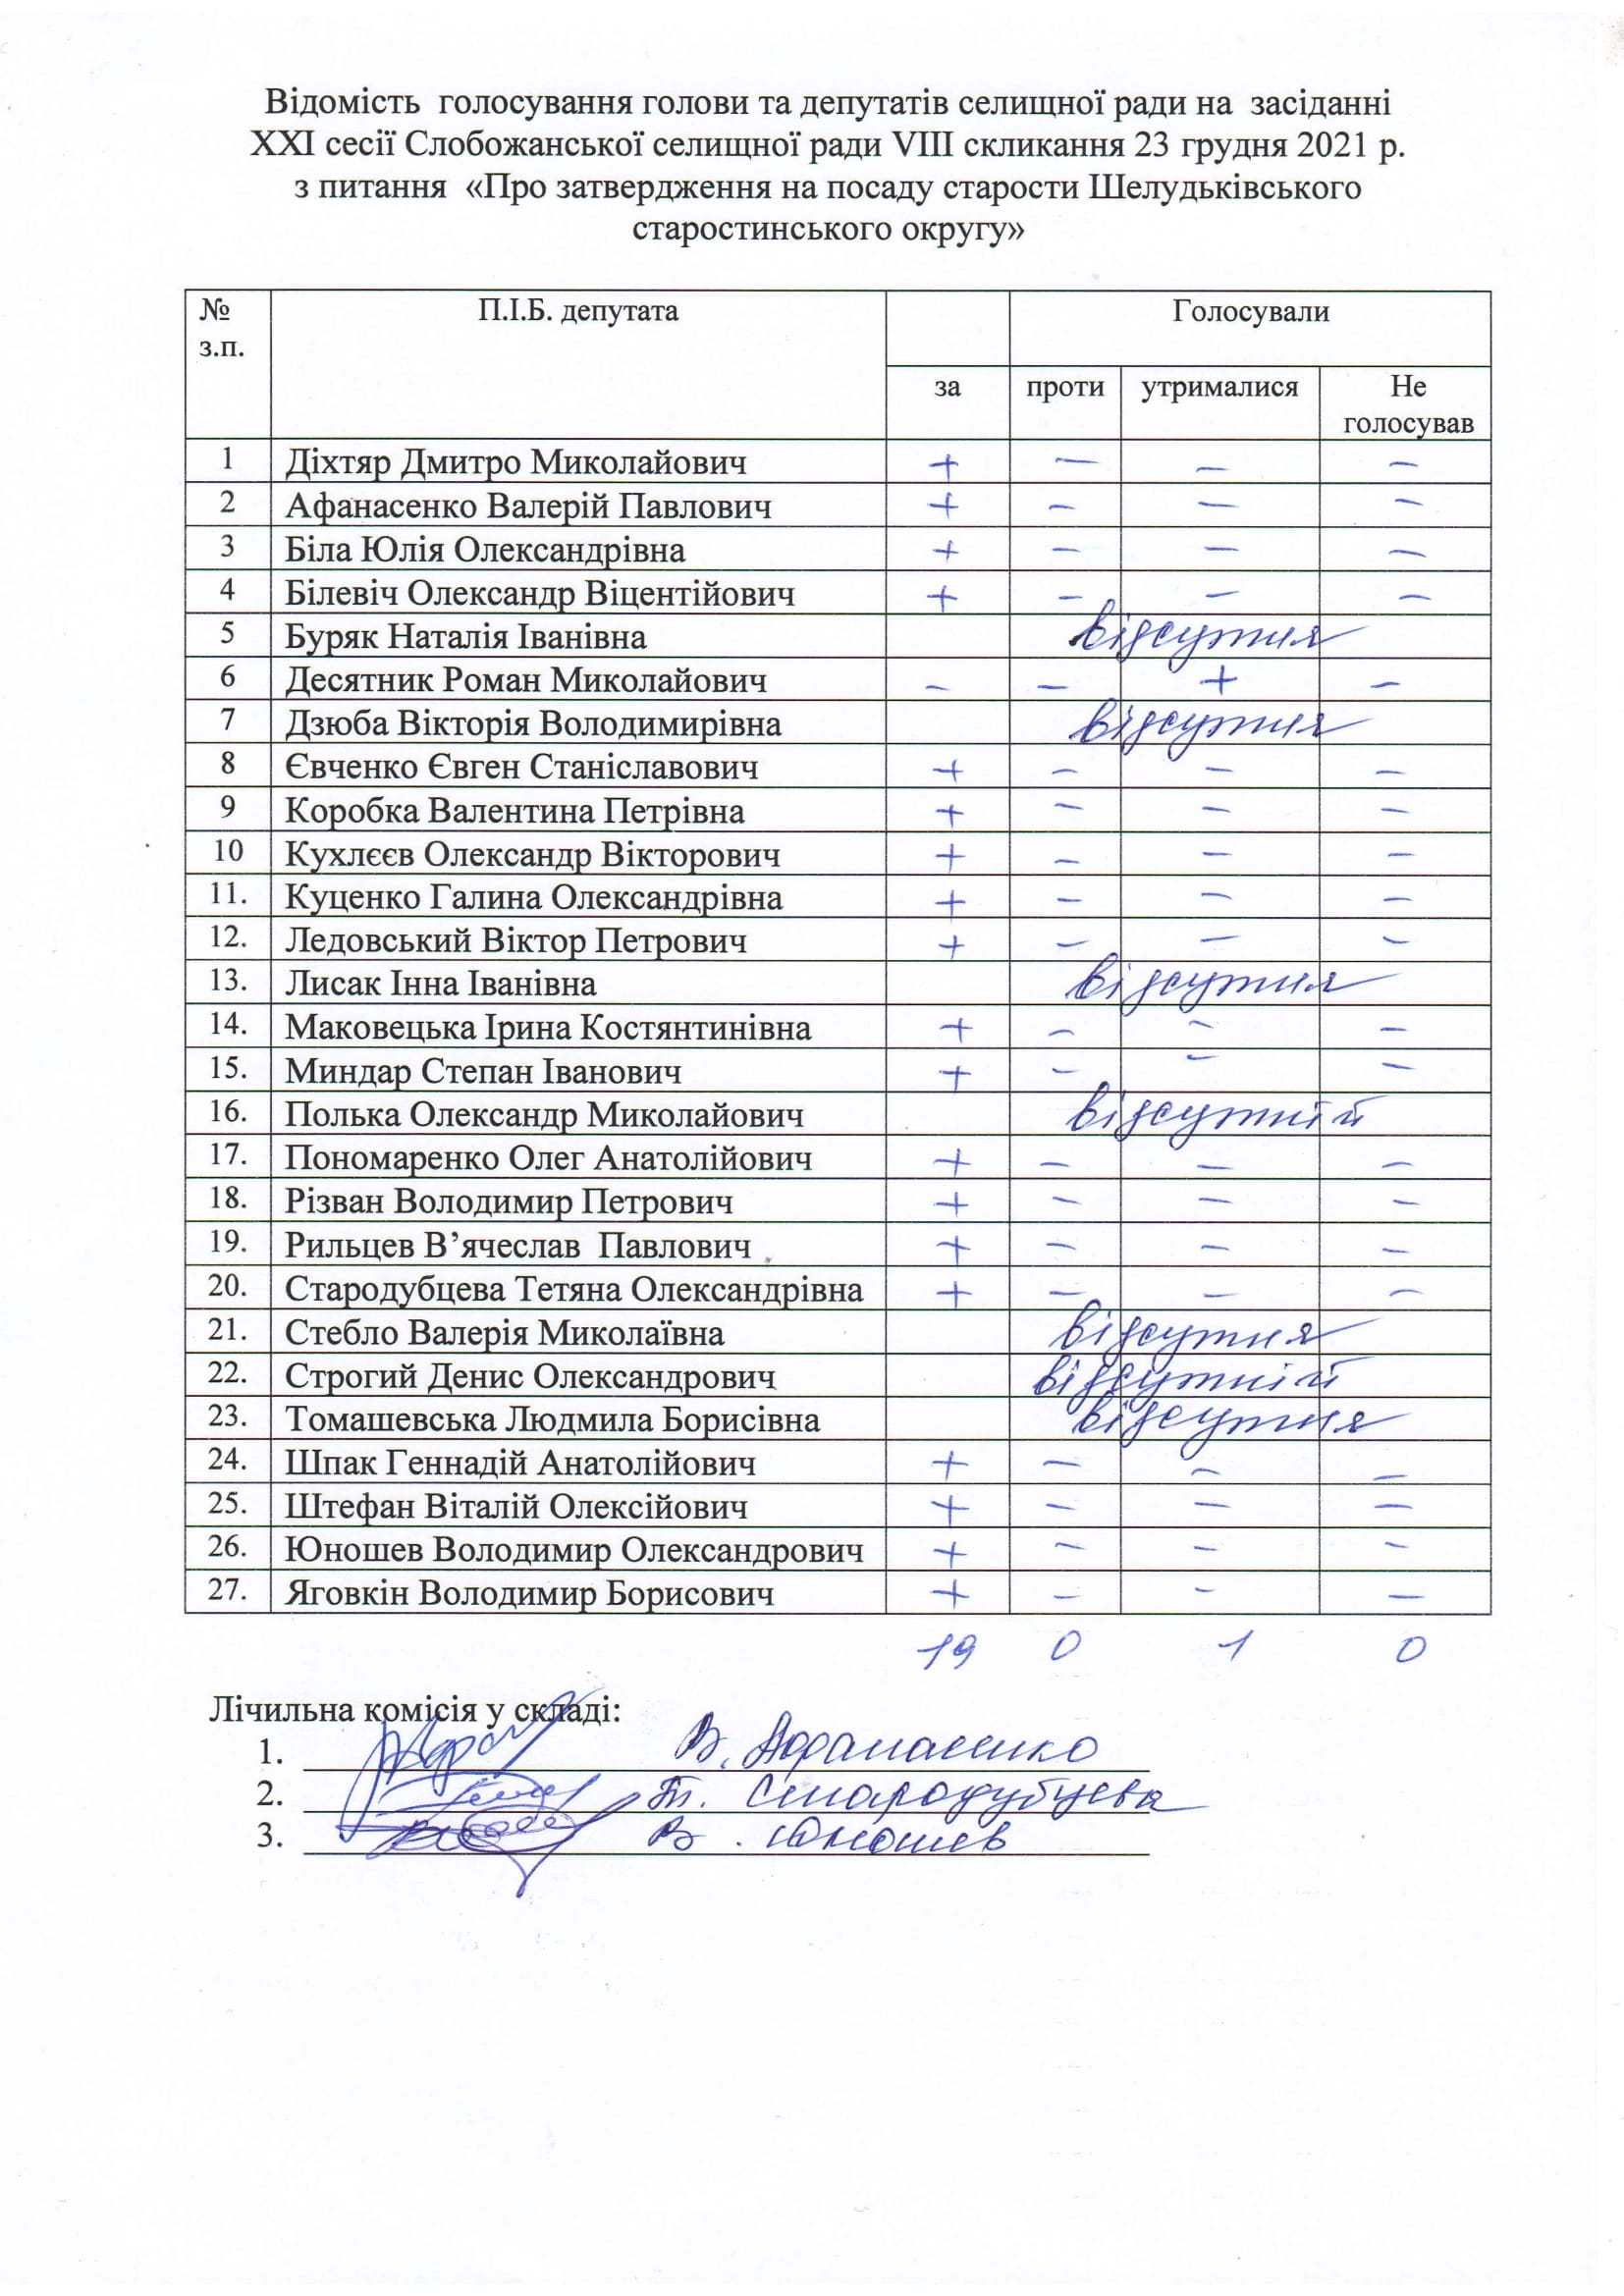 Відомість голосування голови та депутатів селищної ради на засіданні
XXI сесії Слобожанської селищної ради VIII скликання 23 грудня 2021 р.
з питання «Про затвердження на посаду старости Шелудьківського
старостинського округу»
№ з.п. П.І.Б. депутата Голосували
за проти утрималися Не голосував
1 Діхтяр Дмитро Миколайович + — — —
2 Афанасенко Валерій Павлович + — — —
3 Біла Юлія Олександрівна + — — —
4 Білевіч Олександр Віцентійович + — — —
5 Буряк Наталія Іванівна відсутня
6 Десятник Роман Миколайович — — + —
7 Дзюба Вікторія Володимирівна відсутня
8 Євченко Євген Станіславович + — — —
9 Коробка Валентина Петрівна + — — —
10 Кухлєєв Олександр Вікторович + — — —
11. Куценко Галина Олександрівна + — — —
12. Ледовський Віктор Петрович + — — —
13. Лисак Інна Іванівна відсутня
14. Маковецька Ірина Костянтинівна + — — —
15. Миндар Степан Іванович + — — —
16. Полька Олександр Миколайович відсутній
17. Пономаренко Олег Анатолійович + — — —
18. Різван Володимир Петрович + — — —
19. Рильцев В’ячеслав Павлович + — — —
20. Стародубцева Тетяна Олександрівна + — — —
21. Стебло Валерія Миколаївна відсутня
22. Строгий Денис Олександрович відсутній
23. Томашевська Людмила Борисівна відсутня
24. Шпак Геннадій Анатолійович + — — —
25. Штефан Віталій Олексійович + — — —
26. Юношев Володимир Олександрович + — — —
27. Яговкін Володимир Борисович + — — —
19 0 1 0
Лічильна комісія у складі:
1. В. Афанасенко
2. Т. Стародубцева
3. В. Юношев